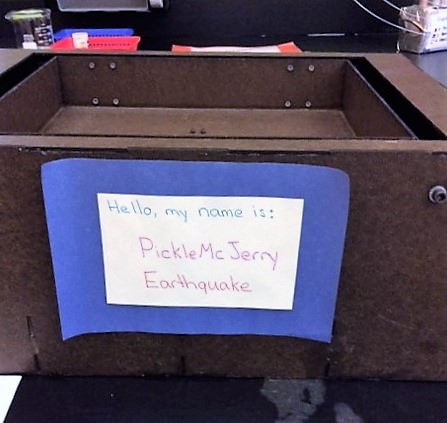 Hello, my name is:
PickleMcJerry
Earthquake